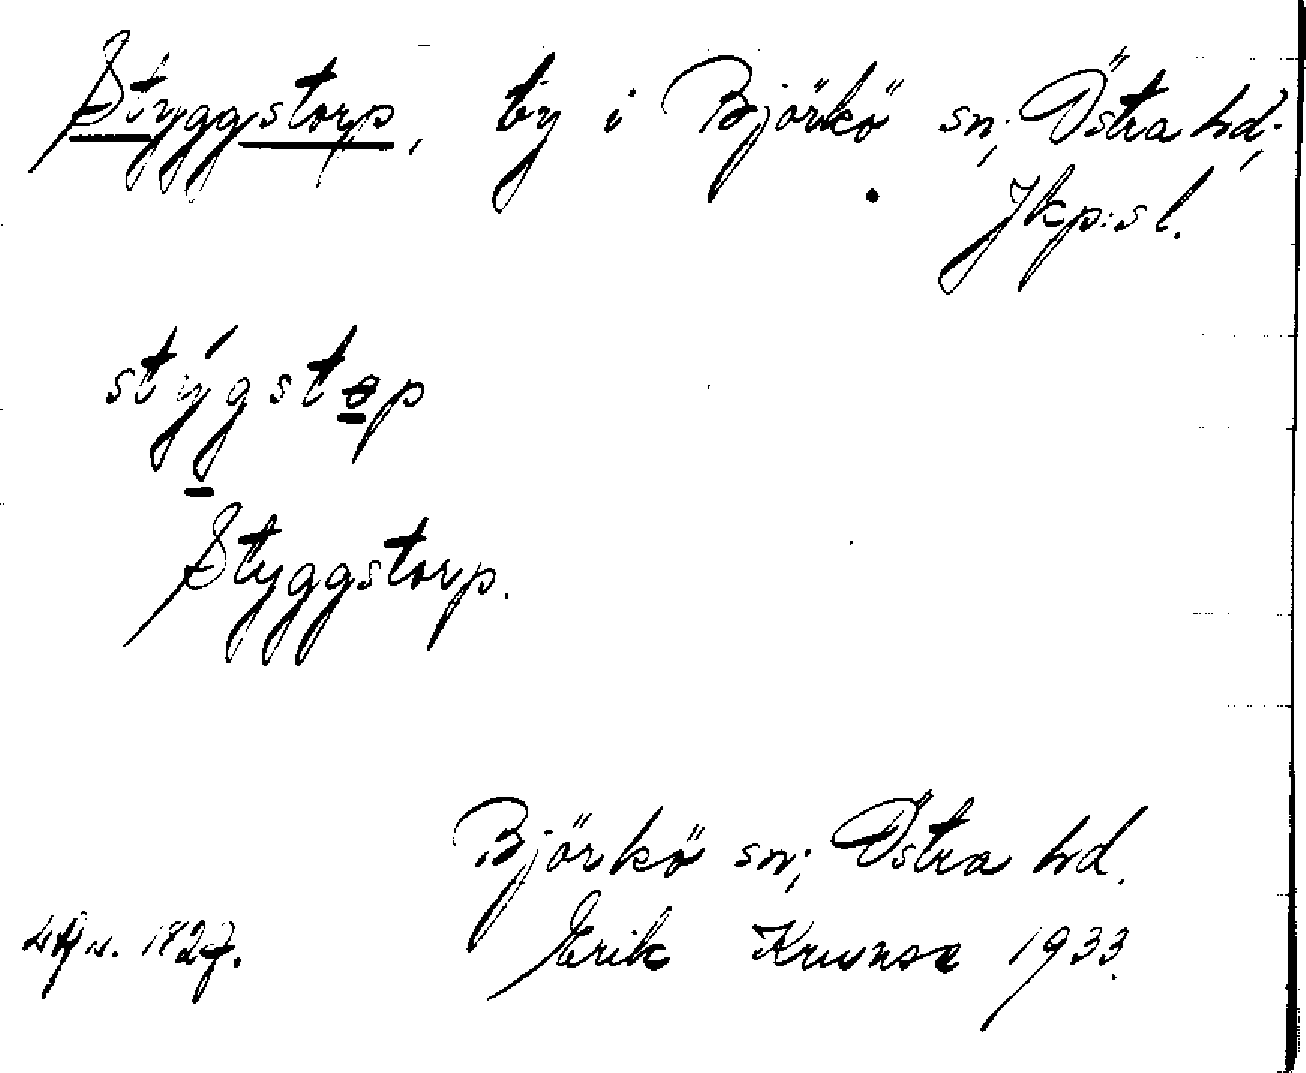 Styggstorp, by i Björkö sn, Östra hd,
Jkp:s l.
stýgstɵp
Styggstorp.
Björkö sn, Östra hd.
1827. Erik Krunse 1933.